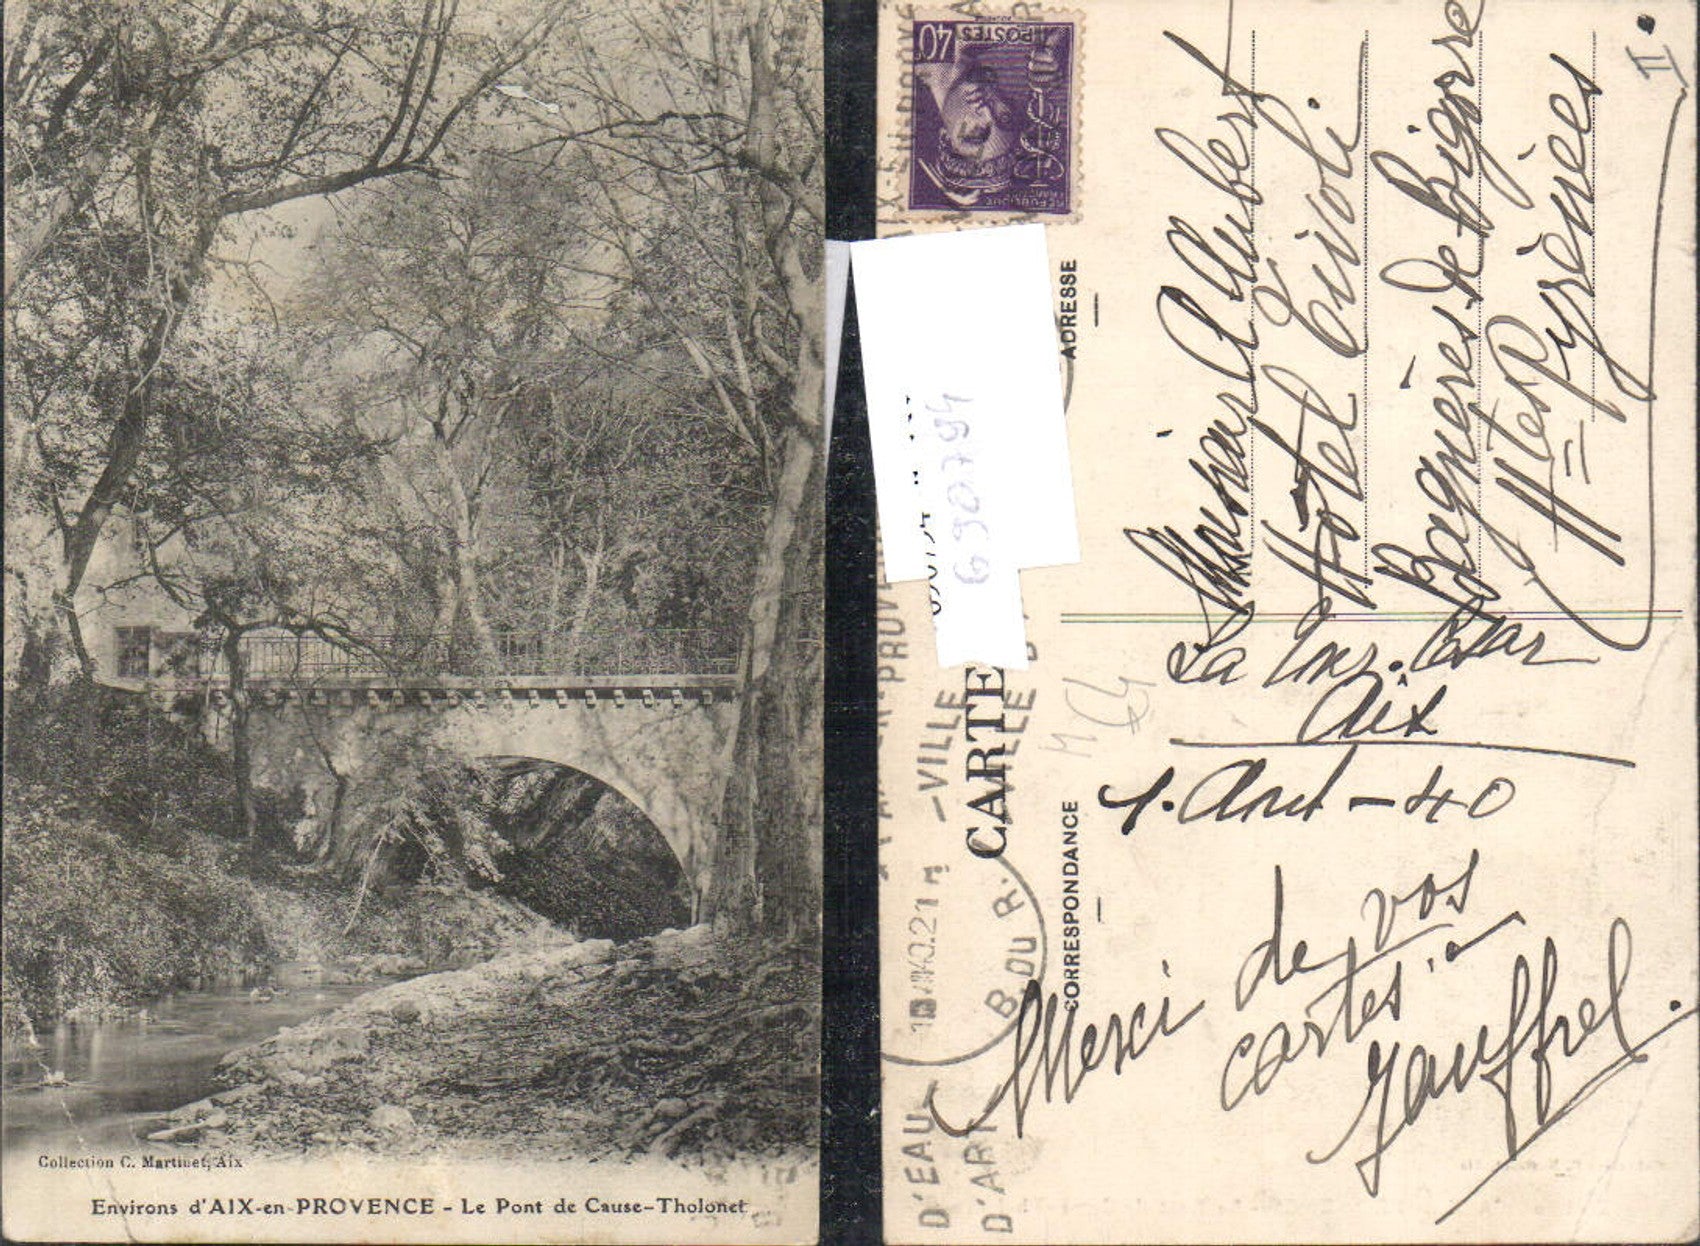 Collection C. Martinet, Aix
Environs d'AIX-en-PROVENCE - Le Pont de Cause-Tholonet
40
POSTES
RÉPUBLIQUE
FRANÇAISE
II
ADRESSE
Monsieur Aubert
Hôtel Tivoli
Bagnères de Bigorre
Htes Pyrénées
690794
CARTE
CORRESPONDANCE
La
Aix
1. Août - 40
Merci de vos
cartes
Jauffrel.
-VILLE
D'EAU
D'ART
B. DU R.